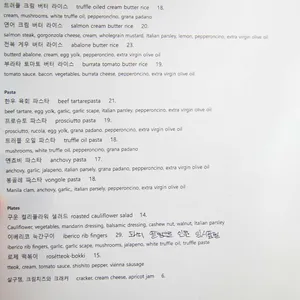 트러플 크림 버터 라이스 truffle oiled cream butter rice 18.
cream, mushrooms, white truffle oil, pepperoncino, grana padano
연어 크림 버터 라이스 salmon cream butter rice 23.
salmon steak, gorgonzola cheese, cream, wholegrain mustard, italian parsley, lemon, pepperoncino, extra virgin olive oil
전복 게우 버터 라이스 abalone butter rice 23.
butterd abalone, cream, egg yolk, garlic, pepperoncino, extra virgin olive oil
부라타 토마토 버터 라이스 burrata tomato butter rice 19.
tomato sauce, bacon, vegetables, burrata cheese, butter, pepperoncino, extra virgin olive oil
Pasta
한우 육회 파스타 beef tartarepasta 21.
beef tartare, egg yolk, garlic, garlic scape, italian parsley, pepperoncino, extra virgin olive oil
프로슈토 파스타 prosciutto pasta 19.
prosciutto, rucola, egg yolk, grana padano, pepperoncino, extra virgin olive oil
트러플 오일 파스타 truffle oil pasta 18.
mushrooms, white truffle oil, pepperoncino, grana padano
엔초비 파스타 anchovy pasta 17.
anchovy, garlic, jalapeno, italian parsely, grana padano, pepperoncino, extra virgin olive oil
봉골레 파스타 vongole pasta 18.
Manila clam, anchovy, garlic, italian parsely, pepperoncino, extra virgin olive oil
Plates
구운 컬리플라워 샐러드 roasted cauliflower salad 14.
Cauliflower, vegetables, mandarin dressing, balsamic dressing, cashew nut, walnut, italian parsley
이베리코 늑간구이 iberico rib fingers 29.
iberico rib fingers, garlic, garlic scape, mushrooms, jalapeno, white truffle oil, truffle paste
로제 떡볶이 roséteok-bokki 15.
tteok, cream, tomato sauce, shishito pepper, vienna sausage
살구잼, 크림치즈와 크래커 cracker, cream cheese, apricot jam 6.